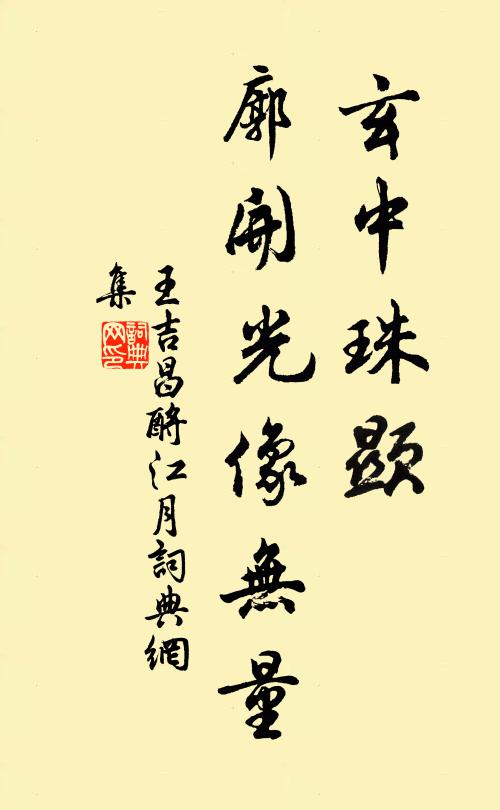 玄中珠顯
廓開光像無量
王吉昌酹江月詞典網
集
詞典
网印